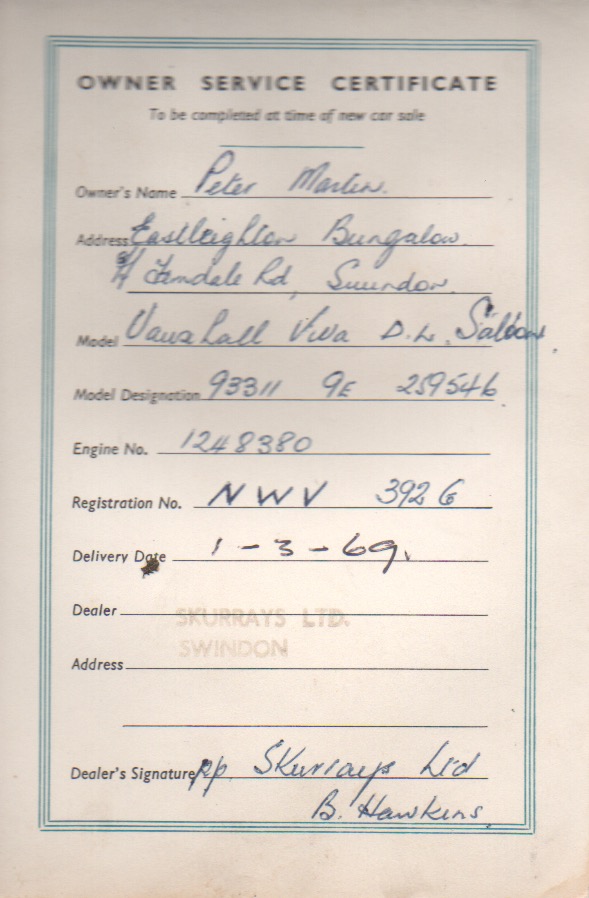 OWNER SERVICE CERTIFICATE
To be completed at time of new car sale
Owner's Name Peter Martin.
Address Eastleighton Bungalow.
Ferndale Rd, Swindon.
Model Vauxhall Viva D.L. Saloon.
Model Designation 93311 9E 259546
Engine No. 1248380
Registration No. NWV 392 G
Delivery Date 1-3-69.
Dealer SKURRAYS LTD.
SWINDON
Address
Dealer's Signature pp. Skurrays Ltd
B. Hawkins.